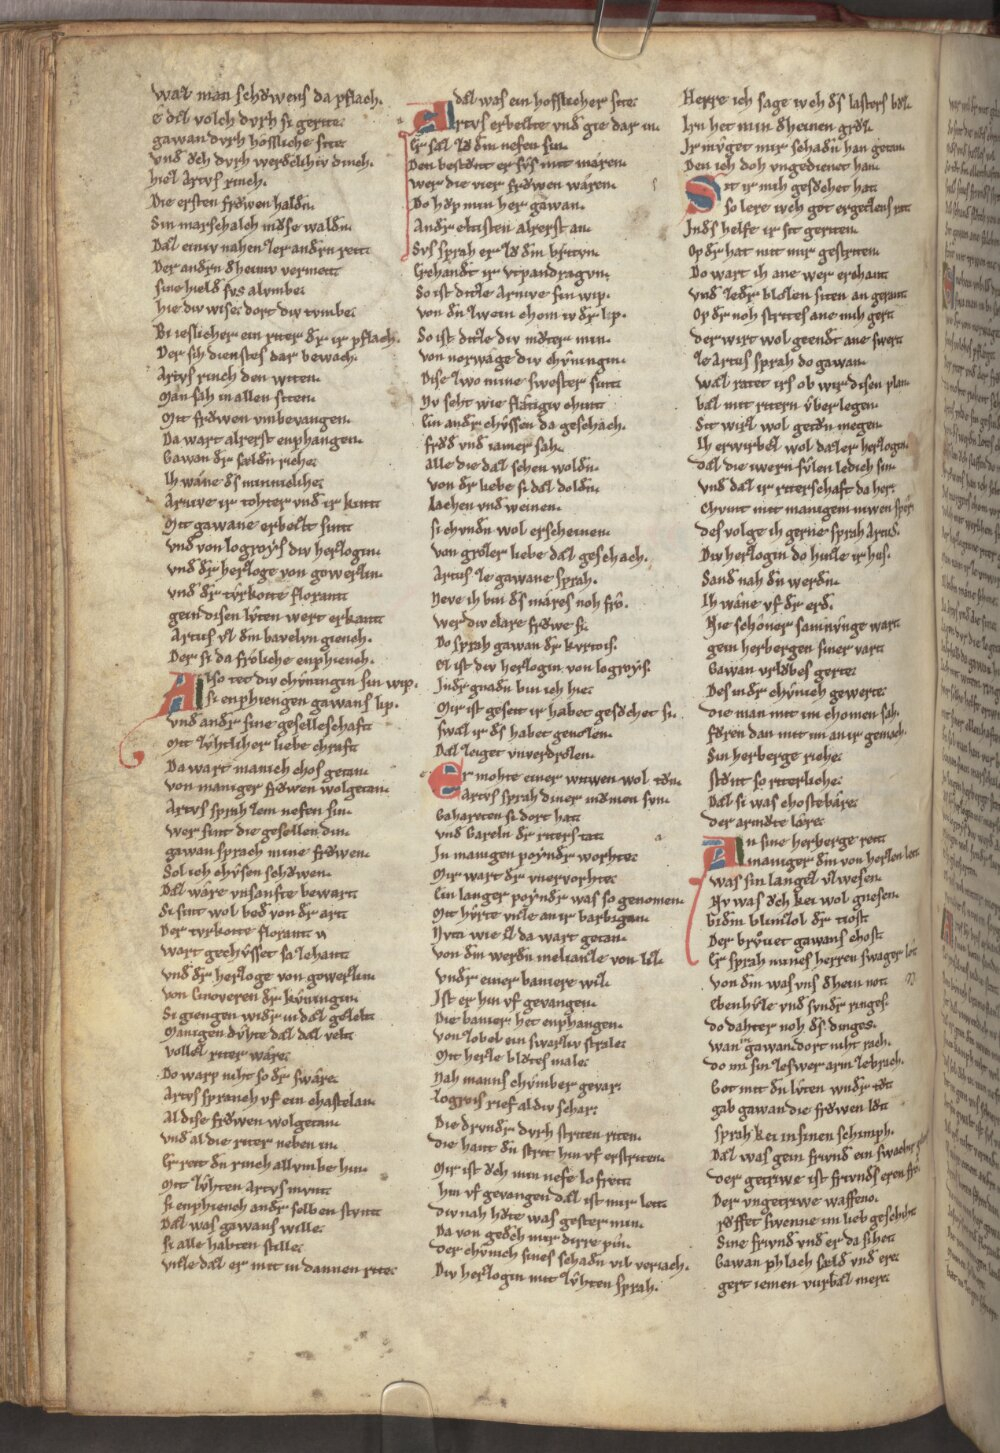 waz man schowens da pflach.
é daz volch durh si gerite.
gawan durh höfsliche site.
vnd och durh werdechliv dinch.
hielt Artvs rinch.
Die ersten frowen haldn.
Sin marschalch mose waldn.
Daz einiv nahen zer andrn reit.
Der andrn dheiniv vermeit.
sine hield svs alvmbe.
hie div wise. dort div tvmbe.
Bi ieslicher ein riter dr ir pflach.
Der sih dienstes dar bewach.
Artvs rinch den witen.
Man sah in allen siten.
Mit frowen vmbevangen.
Da wart alrerst enphangen.
Gawan dr sældn riche.
Ih wæne ds minnecliche.
Arnive ir tohter vnd ir kint.
Mit gawane erbeizt sint.
vnd von logroys div herzogin.
vnd dr herzoge von gowerzin.
vnd dr tvrkoite florant.
gein disen lvten wert erkant.
Artus vz dm bavelvn giench.
Der si da fröliche enphiench.
Also tet div chvningin sin wip.
si enphiengen gawans lip.
vnd andr sine geselleschaft.
Mit lvhtlicher liebe chraft.
Da wart manich chos getan.
von maniger frowen wolgetan.
Artvs sprah zem nefen sin.
wer sint die gesellen din.
gawan sprach mine frowen.
Sol ich chvsen schowen.
Daz wære vnsanfte bewart.
Si sint wol bed von dr art.
Der tvrkoite florant
wart gechvsset sa zehant.
vnd dr herzoge von gowerzin.
von Cinoveren dr kvningin.
Si giengen widr in daz gezelt.
Manigen dvhte daz daz velt.
vollez riter wære.
Do warp niht so dr swære.
Artvs spranch vf ein chastelan.
Al dise frowen wolgetan.
vnd al die riter neben in.
Er reit dn rinch allvmbe hin.
Mit zvhten Artvs mvnt.
si enphiench andr selben stvnt.
Daz was gawans wille.
si alle habten stille.
vnze daz er mit in dannen rite.
daz was ein hofslicher site.
Artvs erbeizte vnd gie dar in.
Er saz zo dm nefen sin.
Den bestont er svs mit mæren.
wer die vier frowen wæren.
Do hop min her gawan.
Andr eltisten alrerst an.
Svs sprah er zo dm britvn.
Erchandt ir vtpandragvn.
So ist ditze Arnive sin wip.
von dn zwein chom iv dr lip.
So ist ditze div mvter min.
von norwæge div chvningin.
Dise zwo mine swester sint.
Nv seht wie flætigiv chint.
Ein andr chvssen da geschach.
frod vnd iamer sah.
alle die daz sehen woldn.
von dr liebe si daz doldn.
lachen vnd weinen.
si chvndn wol erscheinen.
von grozer liebe daz geschach.
Artus ze gawane sprah.
Neve ih bin ds mæres noh frô.
wer div clare frowe si.
Do sprah gawan dr kvrtois.
Ez ist div herzogin von logroys.
Indr gnadn bin ich hie.
Mir ist geseit ir habet gesochet si.
swaz ir ds habet genozen.
Daz zeiget vnverdrozen.
Er mohte einer witwen wol ton.
Artvs sprah diner momen svn.
Gaharten si dort hat.
vnd Gareln dr riters tat.
In manigen poyndr worhte.
Mir wart dr vnervorhte.
Ein langer poyndr was so genomen.
Mit hvrte vnze an ir barbigan.
Nvn wie ez da wart getan.
von dm werdn melianze von liz.
vndr einer baniere wiz.
Ist er hin vf gevangen.
Die banier het enphangen.
von zobel ein swarziv strale.
Mit herze blotes male.
Nah manns chvmber gevar.
logrois rief al div schar.
Die drvndr dvrh striten riten.
die hant dn strit hin vf erstriten.
Mir ist och min nefe lofreit.
hin vf gevangen daz ist mir leit.
div nah hote was gester min.
Da von gedeh mir dirre pin.
Der chvnich sines schadn vil veriach.
Div herzogin mit zvhten sprah.
Herre ich sage iveh ds lasters bôz.
Irn het min dheinen groz.
Ir mvget mir schadn han getan.
Den ich doh vngedienet han.
Sit ir mih gesochet hat.
so lere iveh got ergetzens rat.
Inds helfe ir sit geriten.
Op dr hat mit mir gestriten.
Do wart ih ane wer erchant.
vnd zedr blozen siten an gerant.
Op dr noh strites ane mih gert.
der wirt wol geendt ane swert.
ze Artus sprah do gawan.
waz ratet irs ob wir disen plan.
baz mit ritern vberlegen.
Sit wirz wol geton megen.
Ih erwirbez wol da zer herzogin.
daz die iwern svlen ledich sin.
vnd daz ir riterschaft da her.
chvmt mit manigem niwen sper.
des volge ih gerne sprah Artus.
Div herzogin do hinze ir hus.
Sand nah dn werdn.
Ih wæne vf dr erd.
Nie schöner samnvnge wart.
gein herbergen siner vart.
Gawan vrlobes gerte.
Des in dr chvnich gewerte.
die man mit im chomen sah.
fvren dan mit im an ir gemach.
Sin herberge riche.
stont so riterliche.
Daz si was chostebære.
der armote lære.
In sine herberge reit.
maniger dm von herzen leit.
was sin langez vz wesen.
Nv was och kei wol gnesen.
bidm blimizol dr tiost.
Der brvuet gawans chost.
Er sprah mines herren swager lot.
von dm was vns dhein not.
Ebenhvze vnd svndr ringes.
do dahter noh ds dinges.
wan in gawan dort niht rach.
do im sin zeswer arm zebrach.
Got mit dn lvten wndr tot.
gab gawan die frowen lot.
sprah kei in sinen schimph.
Daz was gein frivnd ein swacher
der getriwe ist frivnds eren fro.
Der vngetriwe waffeno.
roffet swenne im lieb geschiht.
Sine frivnd vnd er da sihet.
Gawan phlach sæld vnd ere.
gert iemen vurbaz mere.